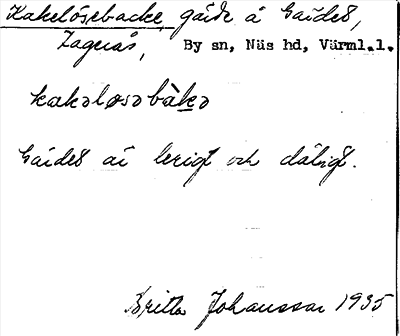 Kakelösebacke, gärde å Gärdet,
By sn, Näs hd, Värml.l.
kakəløsəbàkə
Gärdet är lerigt och dåligt.
Britta Johansson 1935